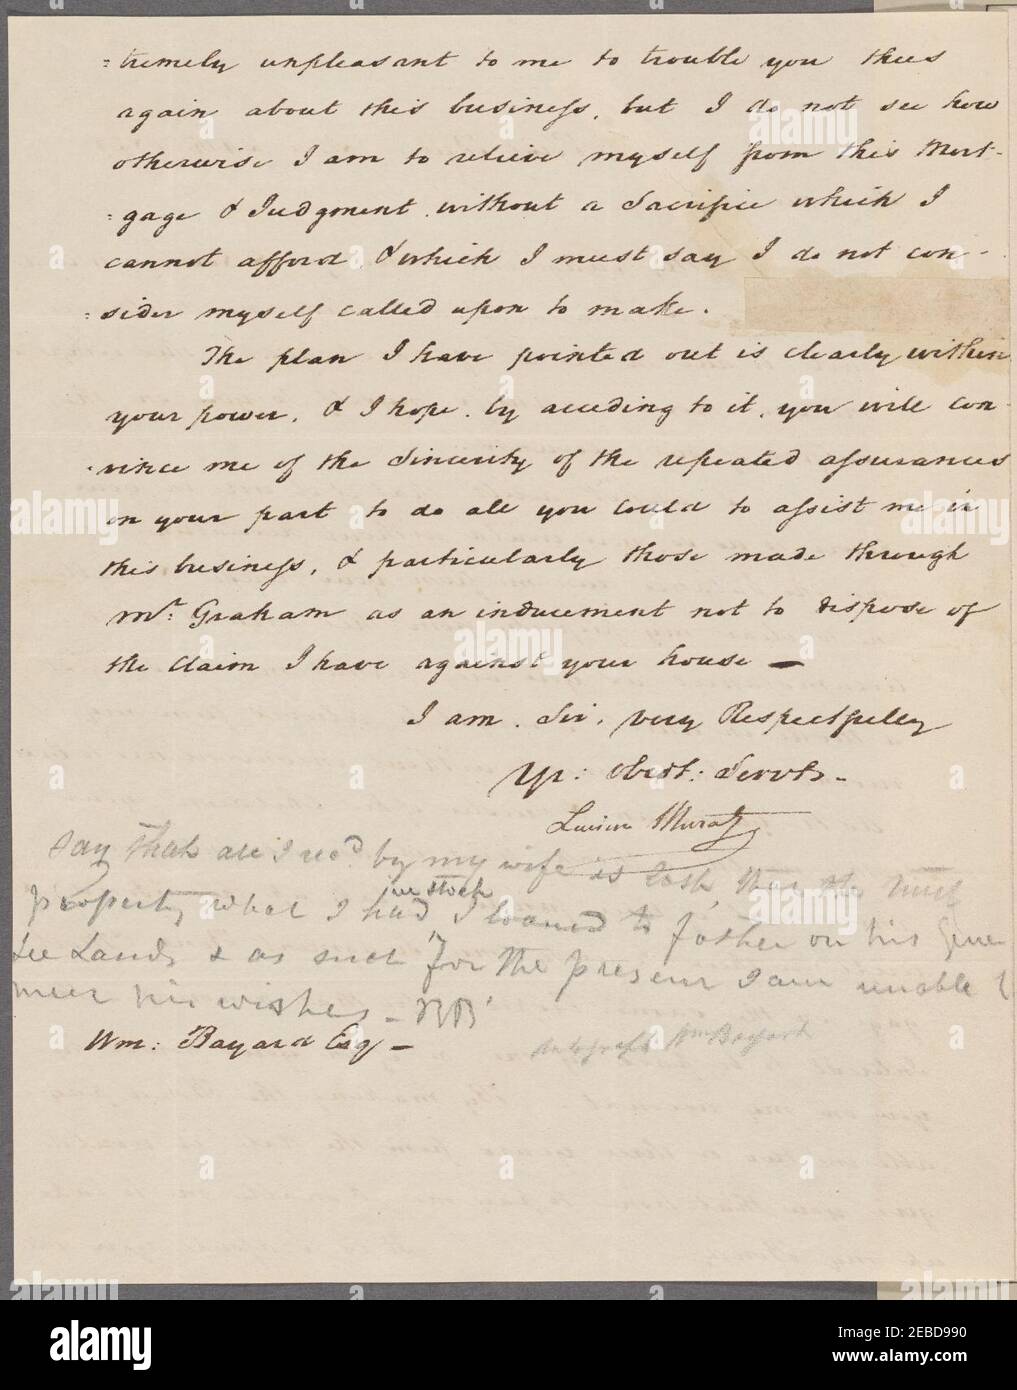 :tremely unpleasant to me to trouble you thus
again about this business, but I do not see how
otherwise I am to relieve myself from this Mort-
:gage & Judgment, without a Sacrifice which I
cannot afford, & which I must say I do not con-
:sider myself called upon to make.
The plan I have pointed out is clearly within
your power, & I hope, by acceding to it, you will con-
-vince me of the Sincerity of the repeated assurances
on your part to do all you could to assist me in
this business, & particularly those made through
Mr. Graham as an inducement not to dispose of
the claim I have against your house —
I am, Sir, very Respectfully
Yr: obedt: Servt.
Lucien Murat
say that all I recd by my wife is lost, that the
property what I had in stock, I loaned to father on his Gene
see Lands & as such, for the present I am unable
meet his wishes - 
Wm: Bayard Esq —
Wm Bayard
alamy
Image ID: 2EBD990
www.alamy.com